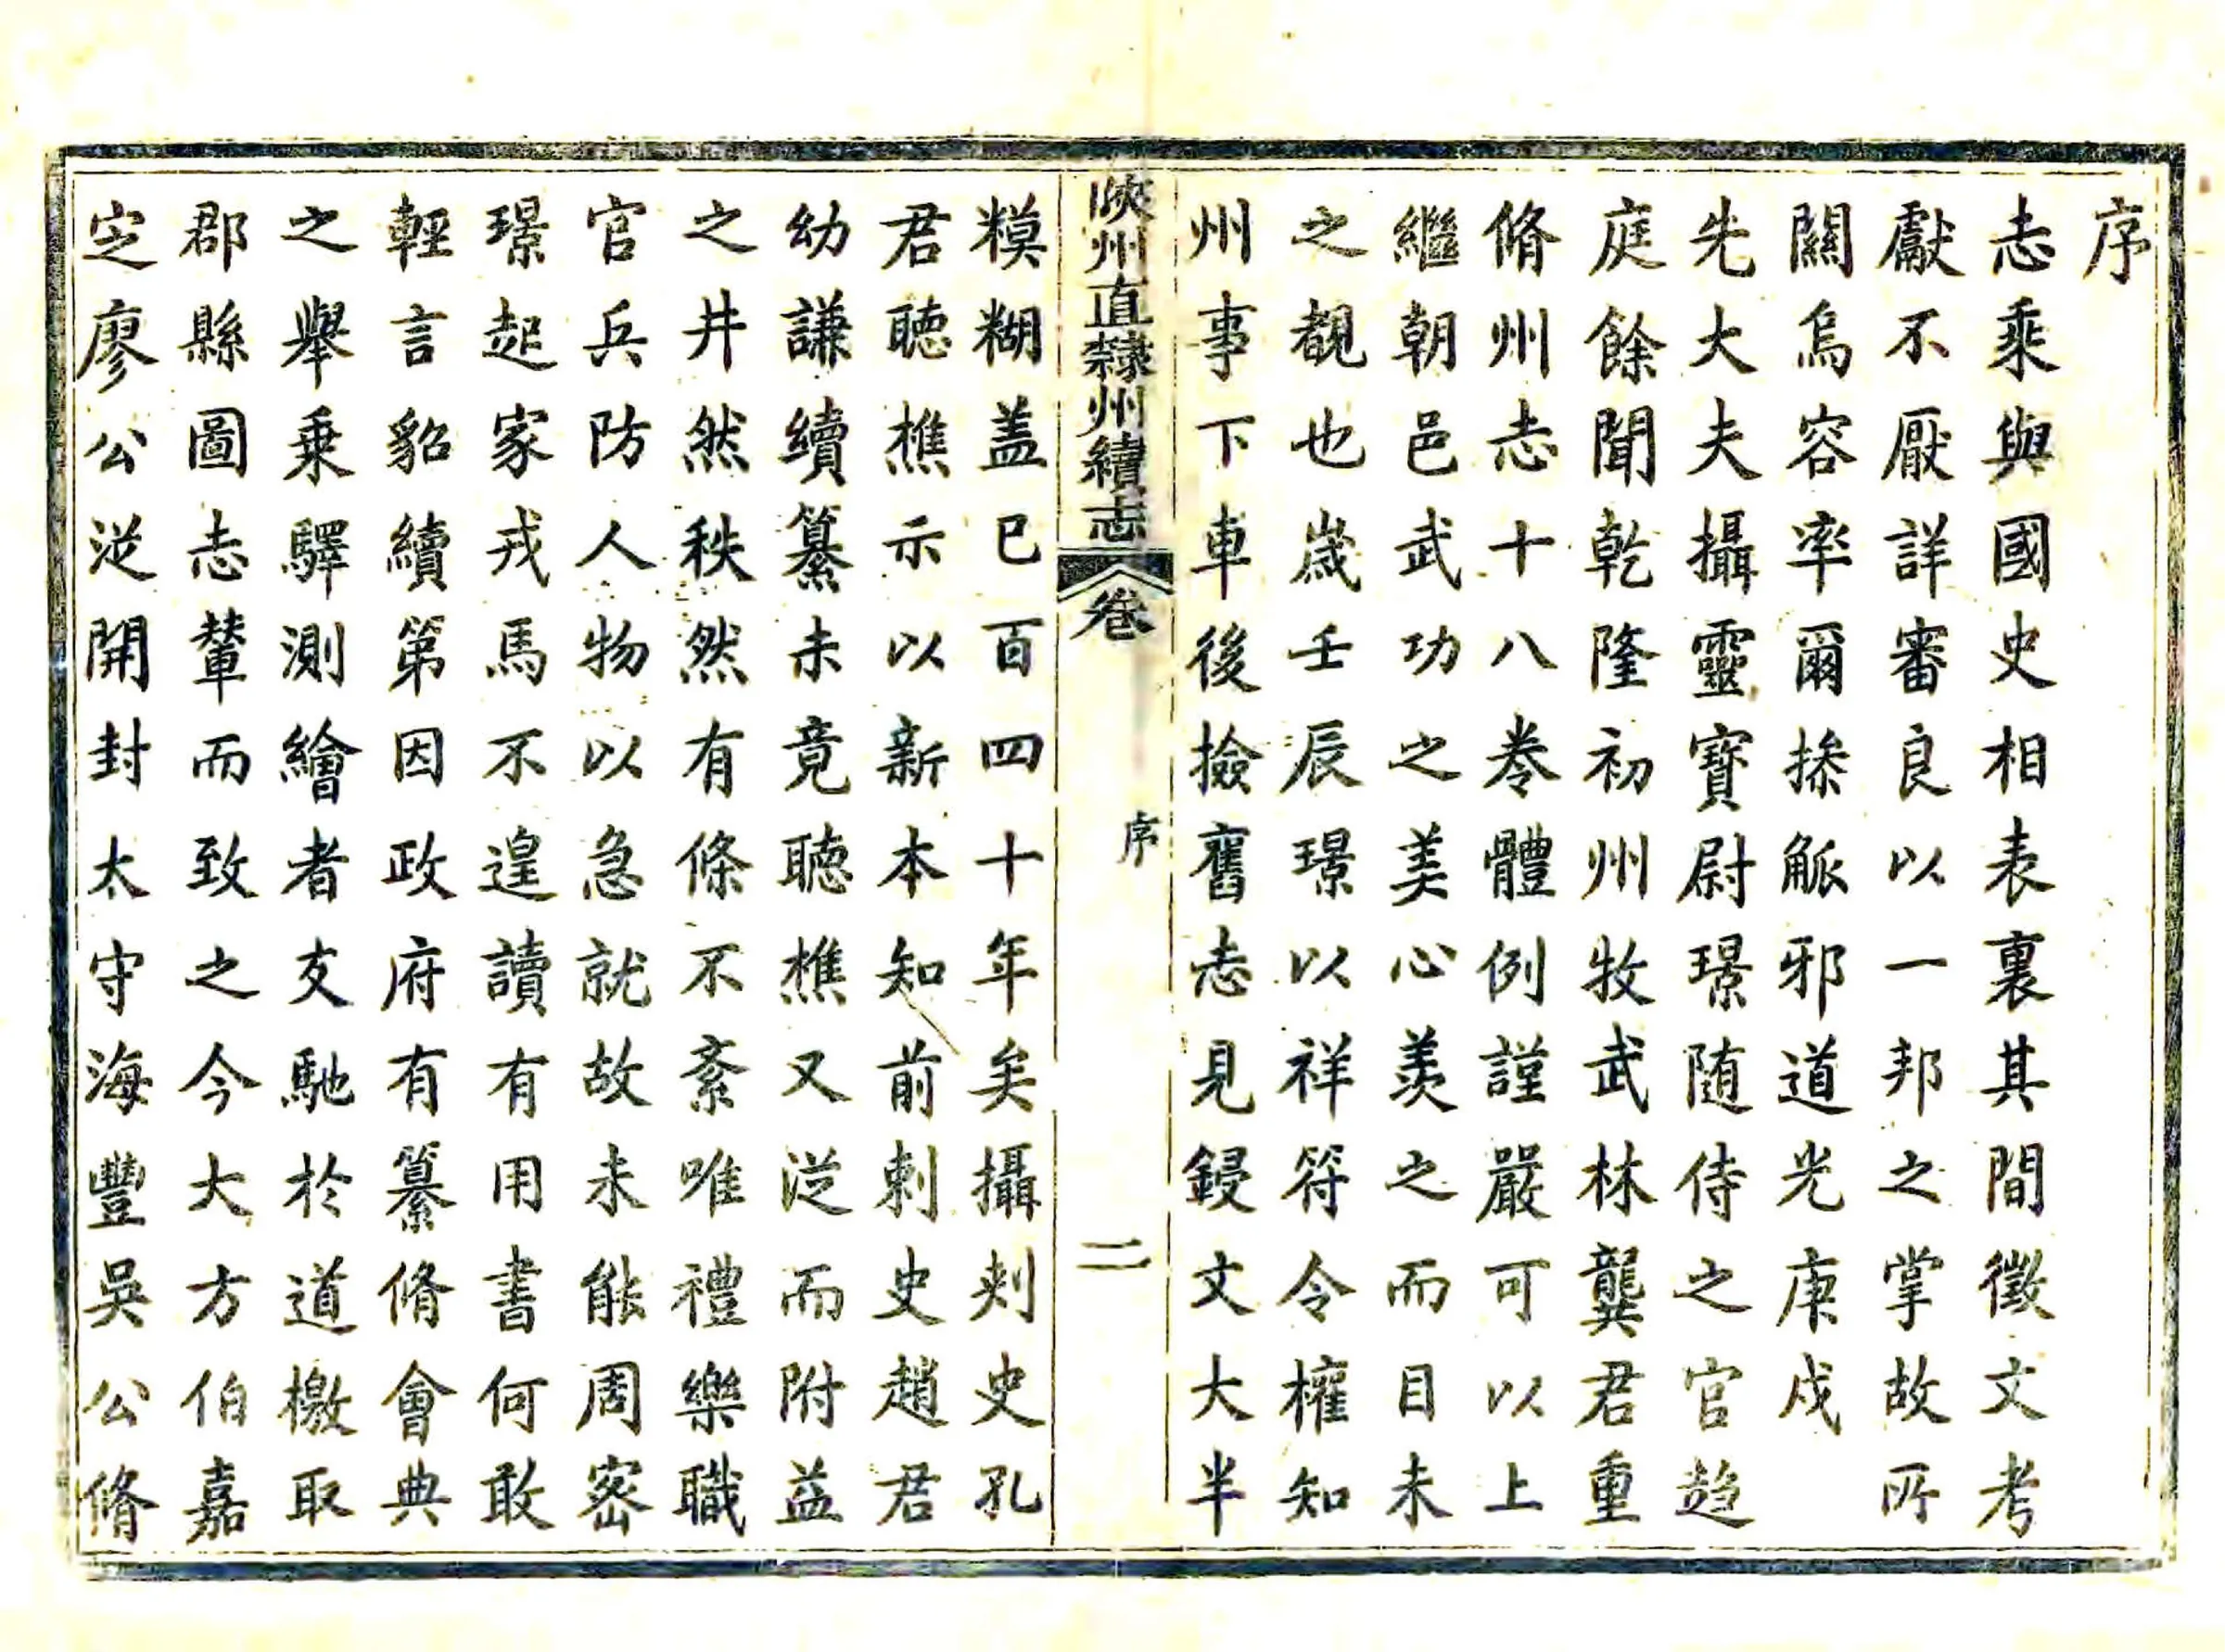 序
志乘與國史相表裏其間徵文考
獻不厭詳審良以一邦之掌故所
關烏容率爾掭觚邪道光庚戍
先大夫攝靈寶尉璟随侍之官趋
庭餘聞乾隆初州牧武林龔君重
脩州志十八卷體例謹嚴可以上
繼朝邑武功之美心羨之而目未
之覩也歲壬辰璟以祥符令權知
州事下車後撿舊志見鋟文大半
陝州直隸州續志
卷
序
二
糢糊盖已百四十年矣攝刺史孔
君聴樵示以新本知前刺史趙君
幼謙續纂未竟聴樵又從而附益
之井然秩然有條不紊唯禮樂職
官兵防人物以急就故未能周密
璟起家戎馬不遑讀有用書何敢
輕言貂續第因政府有纂脩會典
之舉乘驛測繪者交馳於道檄取
郡縣圖志輦而致之今大方伯嘉
定廖公從開封太守海豐吳公脩